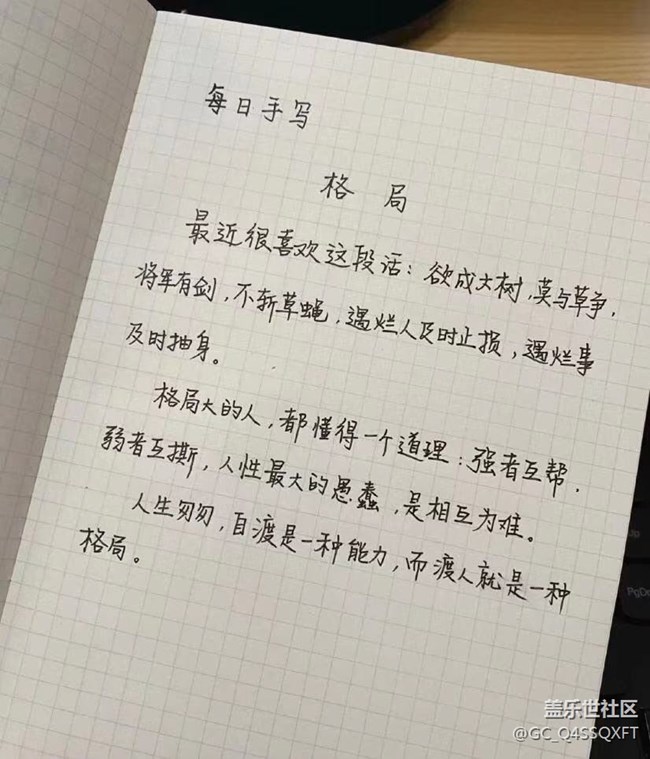 每日手写
格局
最近很喜欢这段话：欲成大树，莫与草争，
将军有剑，不斩草蝇，遇烂人及时止损，遇烂事
及时抽身。
格局大的人，都懂得一个道理：强者互帮，
弱者互撕，人性最大的愚蠢，是相互为难。
人生匆匆，自渡是一种能力，而渡人就是一种
格局。
PgDn
盖乐世社区
@GC_Q4SSQXFT